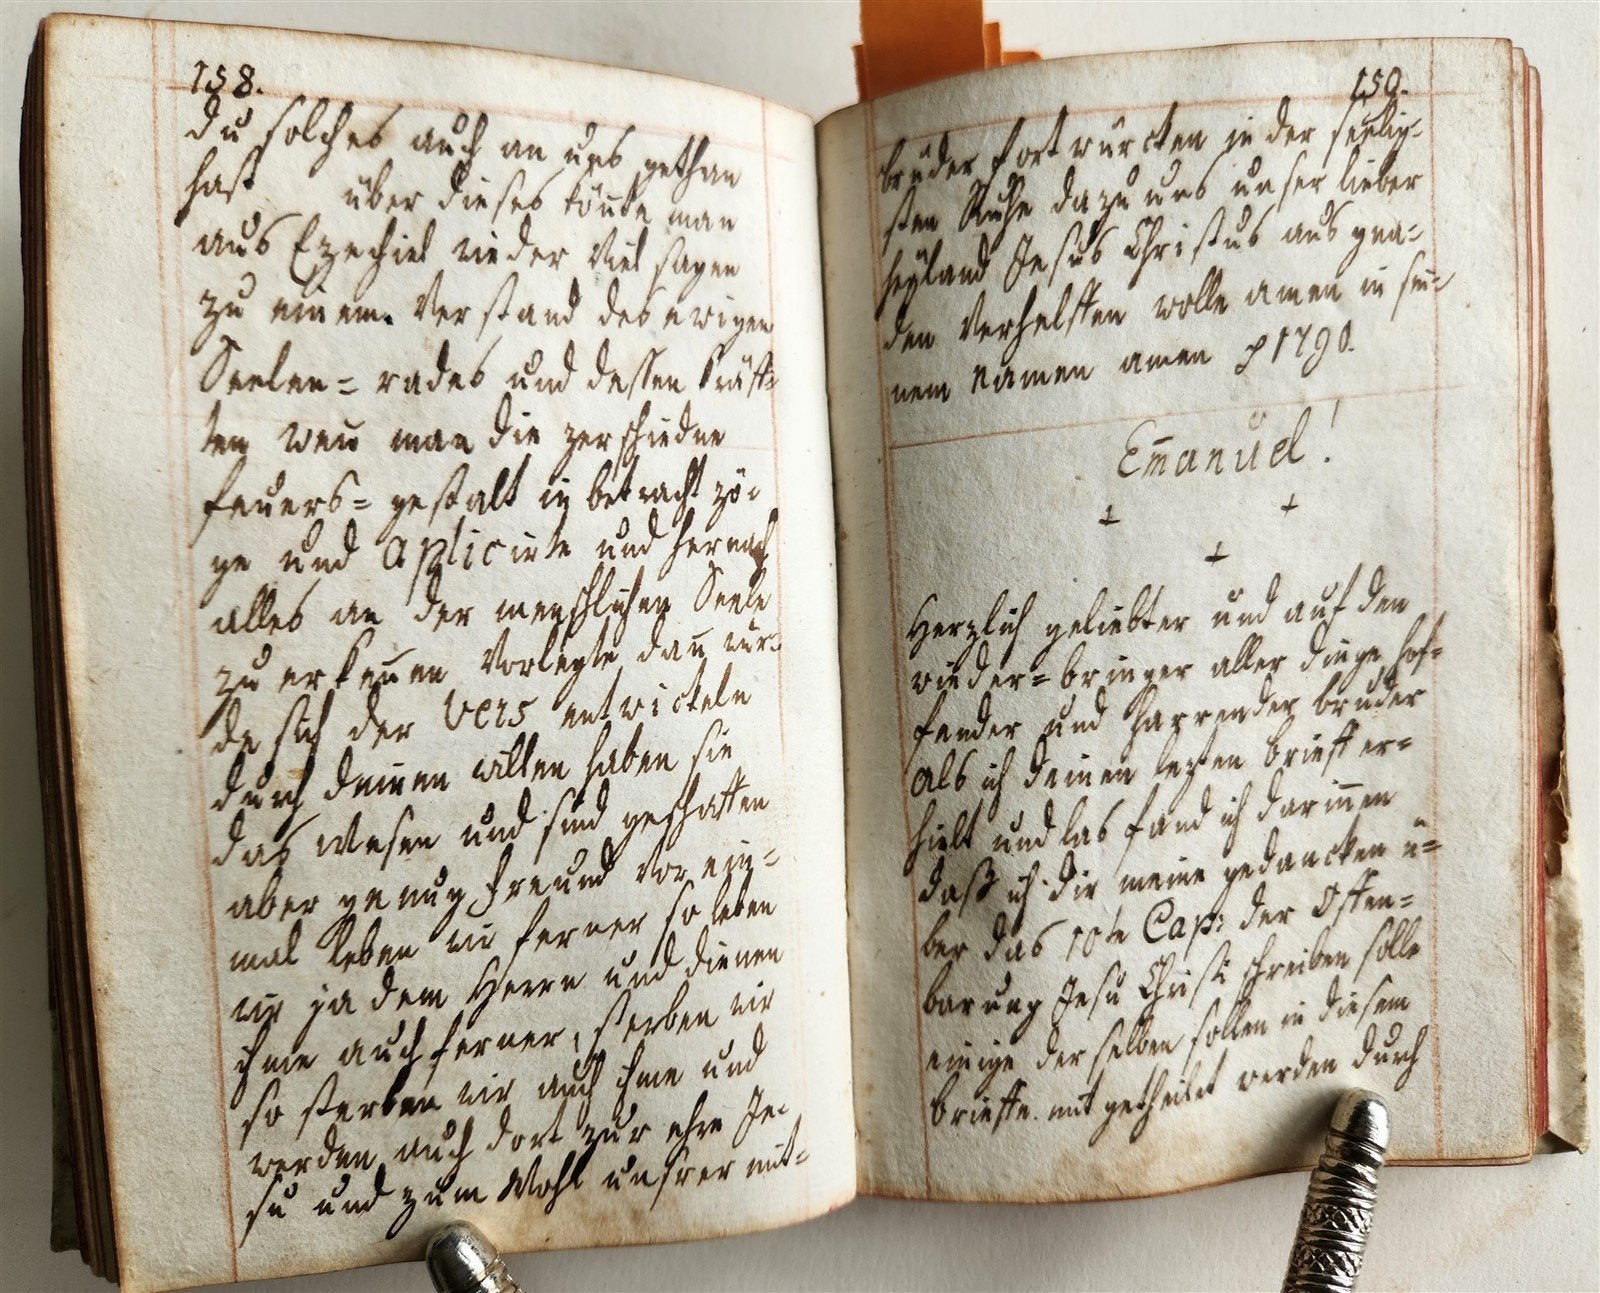 158.
du solches auch an uns gethan
hast über dieses könte man
aus Ezechiel wieder Viel sagen
zu einem Verstand des ewigen
Seelen= rades und dessen Kräff=
ten wen̄ man die zerschiedne
feuers= gestalt in betracht zö=
ge und aplicirte und hernach
alles an der menschlichen Seele
zu erken̄en Vorlegte dan̄ wür=
de sich der Vers entwickeln
durch deinen willen haben sie
das Wesen und sind geschaffen
aber genug freund vor ein=
mal leben wir ferner so leben
wir ja dem Herrn und dienen
ihme auch ferner, sterben wir
so sterben wir auch ihme und
werden auch dort zur ehre Je=
su und zum Wohl unsrer mit=
159.
brüder fort würcken in der seelig=
sten Ruhe dazu uns unser lieber
heÿland Jesus Christus aus gna=
den Verhelffen wolle amen in sei=
nem Namen amen 1790.
Em̄anuel!
+ +
+
Herzlich geliebter und auf den
wieder=bringer aller dinge hof=
fender und harrender bruder
als ich deinen lezten brieff er=
hielt und las fand ich darin̄en
daß ich dir meine gedancken ü=
ber das 10te Cap: der Offen=
barung Jesu Christi schreiben solle
einige der selben sollen in diesem
brieffe mit getheilet werden durch